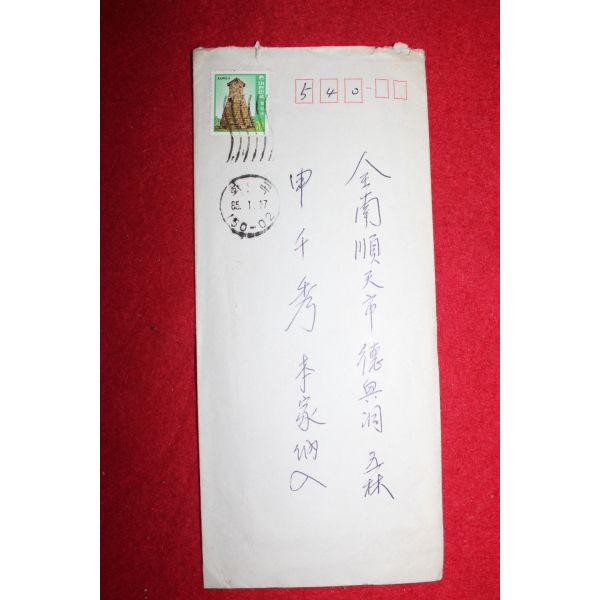 KOREA
540-
全南順天市德興洞 五林
申千秀 本家納入
85.1.17
150-02